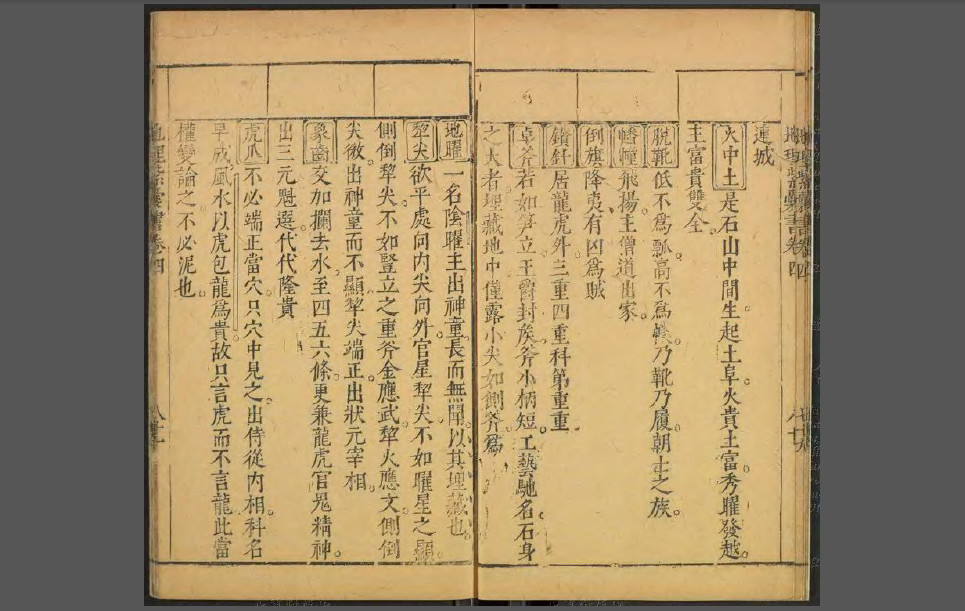 地理紫囊書卷四
連城
火中土是石山中間生起土阜火貴土富秀曜發越
主富貴雙全
脫靴低不爲瓢高不爲㡡乃靴乃履朝士之族
幡幢飛揚主僧道出家
倒旗降夷有凶爲賊
鑽釺居龍虎外三重四重科第重重
卓斧若如笋立王爵封矦斧小柄短工藝馳名石身
之大者埋藏地中僅露小尖如側斧爲
地曜一名陰曜主出神童長而無聞以其埋藏也
犂尖欲平處向内尖向外官星犂尖不如曜星之顯
側倒犂尖不如豎立之重斧金應武犂火應文側倒
尖微出神童而不顯犂尖端正出狀元宰相
象齒交加攔去水至四五六條更兼龍虎官鬼精神
出三元魁選代代隆貴
虎爪不必端正當穴只穴中見之出侍從内相科名
早成風水以虎包龍爲貴故只言虎而不言龍此當
權變論之不必泥也
地理紫囊書卷四